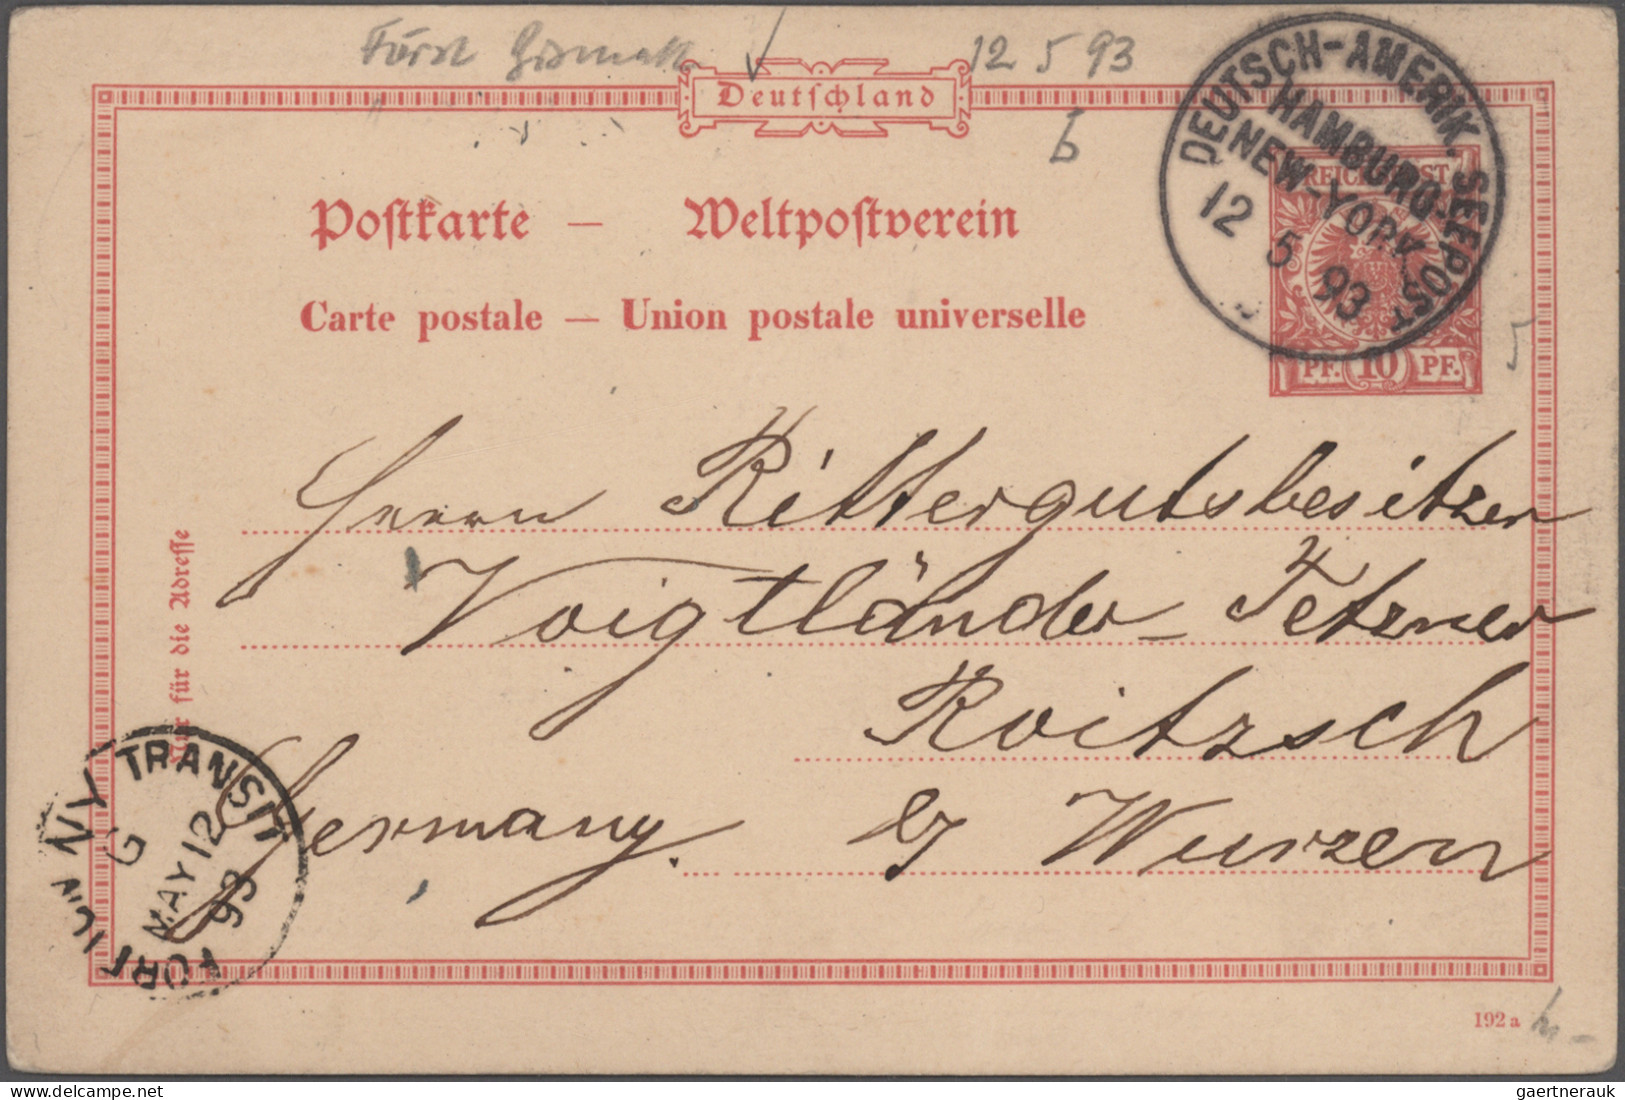 Fürst Bismark 12 5 93
Deutschland
b
DEUTSCH-AMERIK. SEEPOST
HAMBURG-
NEW-YORK
12 5 93
REICHSPOST
PF. 10 PF.
5
Postkarte — Weltpostverein
Carte postale — Union postale universelle
Nur für die Adresse
Herrn Rittergutsbesitzer
Voigtländer-Tetzner
Roitzsch
b/ Wurzen
Germany.
NY TRANSIT
G
MAY 12
93
192 a
gaertnerauk